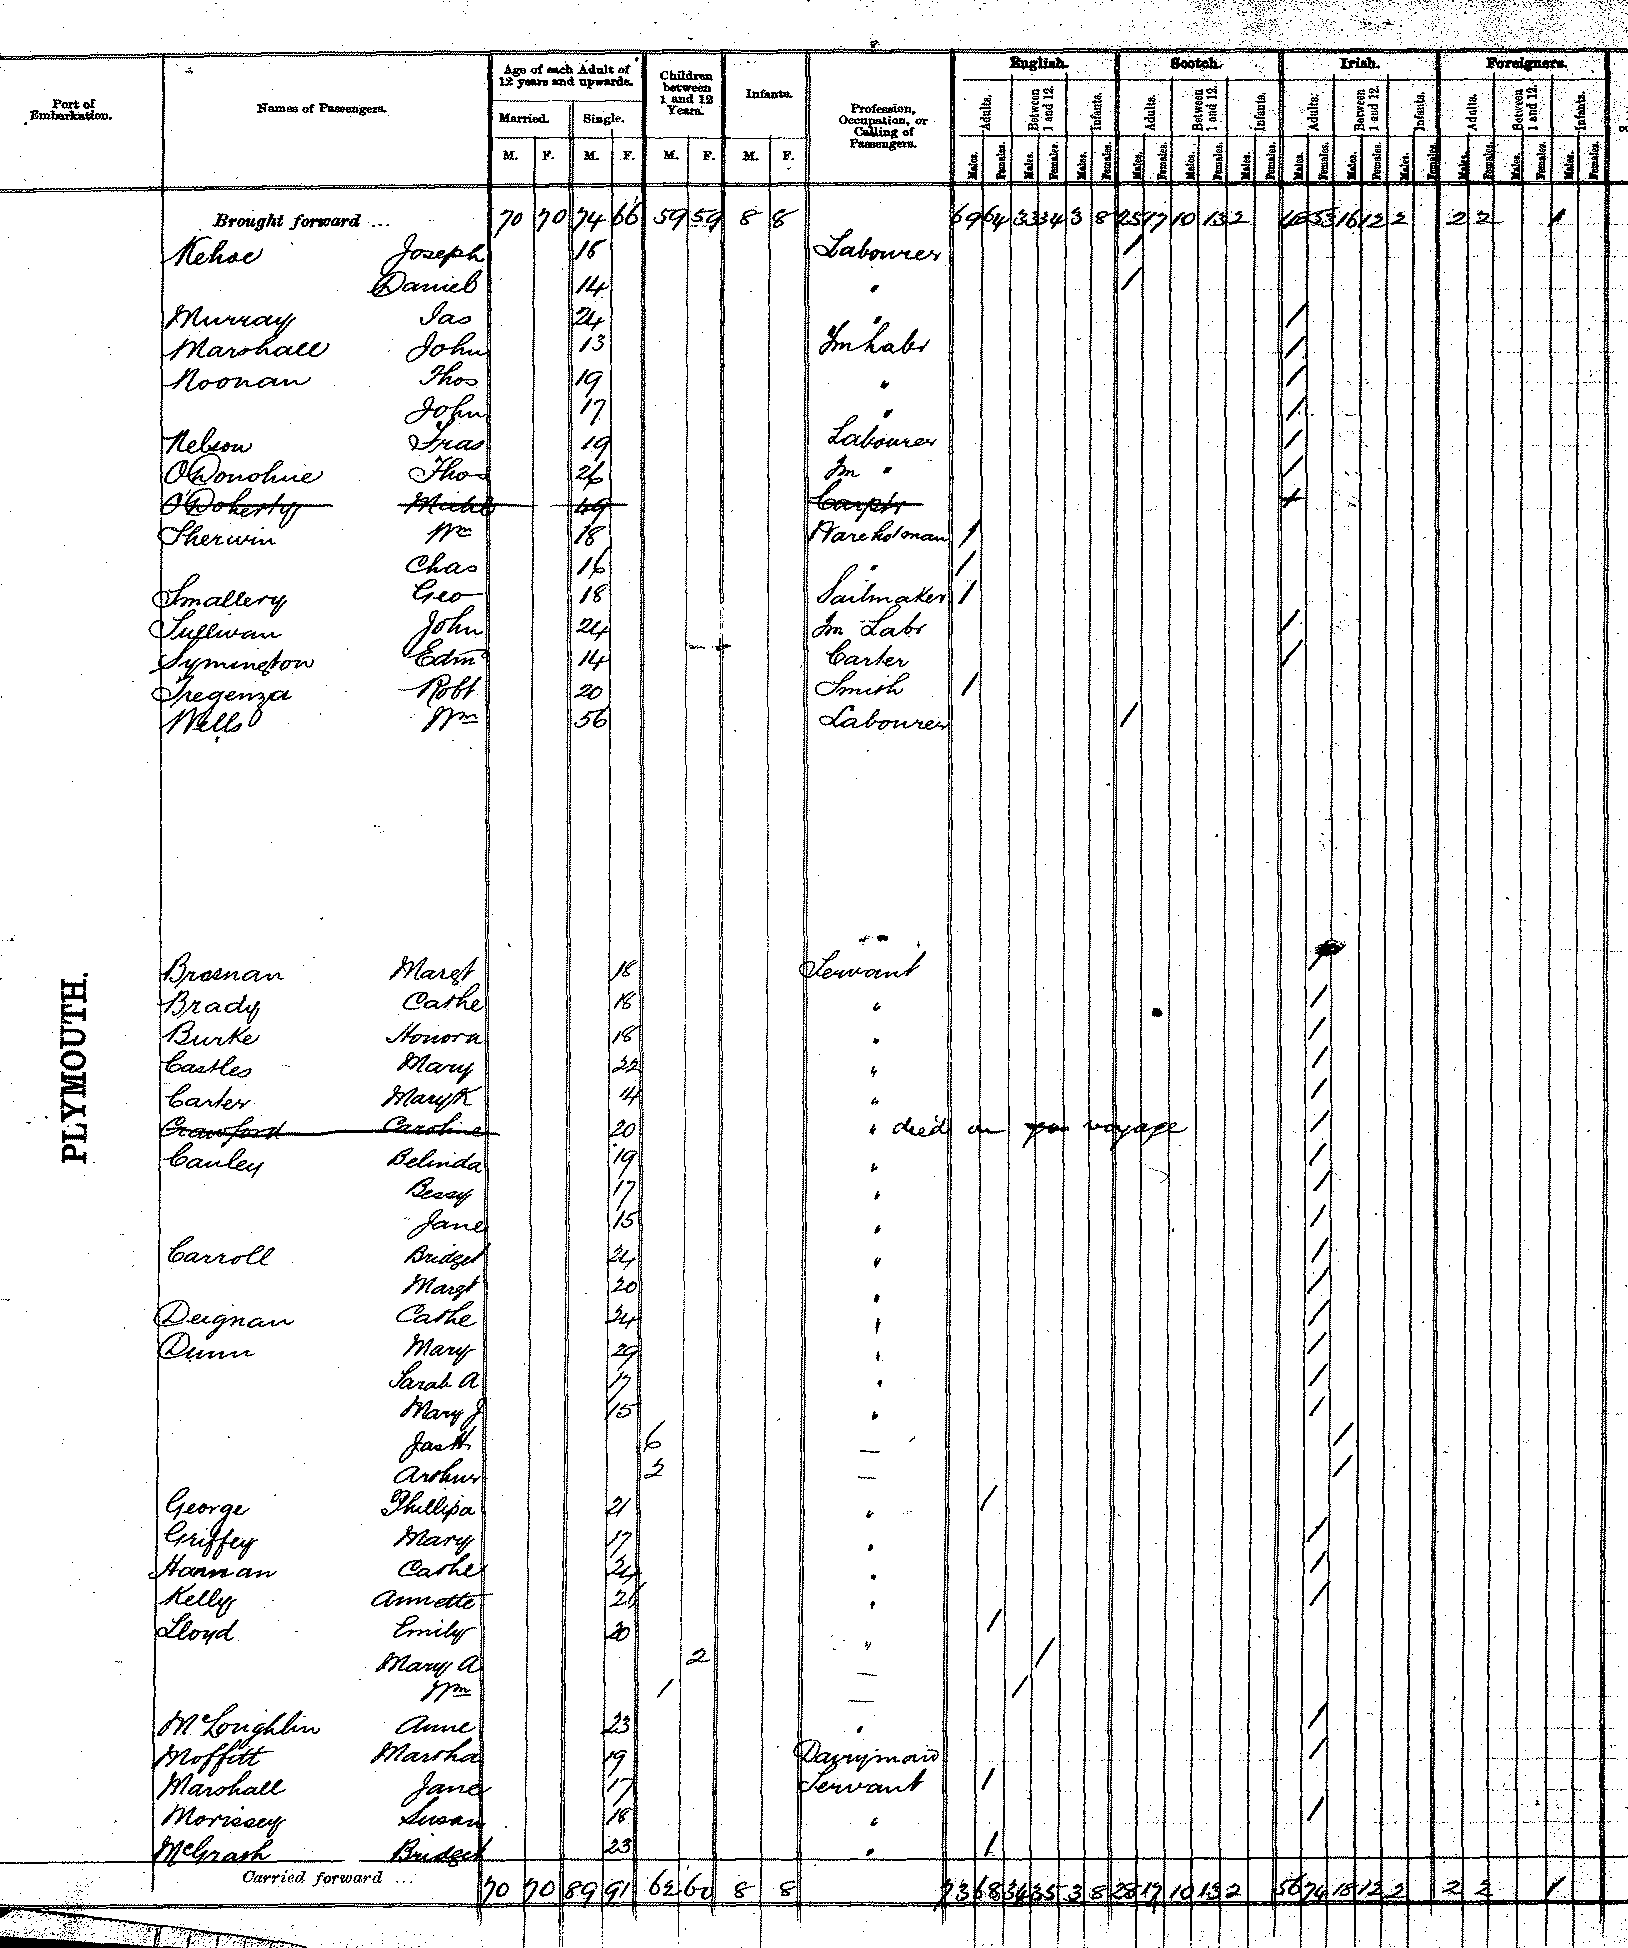 Port of Embarkation. Names of Passengers. Age of each Adult of 12 years and upwards. Children between 1 and 12 Years. Infants. Profession, Occupation, or Calling of Passengers. English. Scotch. Irish. Foreigners.
Married. Single. Adults. Between 1 and 12. Infants. Adults. Between 1 and 12. Infants. Adults. Between 1 and 12. Infants. Adults. Between 1 and 12. Infants.
M. F. M. F. M. F. M. F. Males. Females. Males. Females. Males. Females. Males. Females. Males. Females. Males. Females. Males. Females. Males. Females. Males. Females. Males. Females. Males. Females. Males. Females.
Brought forward ... 70 70 74 66 59 59 8 8 69 64 33 34 3 8 25 17 10 13 2 53 16 12 2 2 2 1
Kehoe Joseph 16 Labourer /
Daniel 14 " /
Murray Jas 24 " /
Marshall John 13 Fm Labr /
Noonan Thos 19 " /
John 17 " /
Nelson Fras 19 Labourer /
O'Donohue Thos 26 Fm " /
O'Doherty Michl 49 Carptr /
Sherwin Wm 18 Warehosman /
Chas 16 " /
Smallery Geo 18 Sailmaker /
Sullivan John 24 Fm Labr /
Symington Edm 14 Carter /
Tregenza Robt 20 Smith /
Wells Wm 56 Labourer /
PLYMOUTH.
Brosnan Margt 18 Servant /
Brady Cathe 18 " /
Burke Honora 18 " /
Castles Mary 22 " /
Carter Mary K 14 " /
Crawford Caroline 20 " died on voyage /
Cauley Belinda 19 " /
Bessy 17 " /
Jane 15 " /
Carroll Bridget 24 " /
Margt 20 " /
Deignan Cathe 24 " /
Dunn Mary 29 " /
Sarah A 17 " /
Mary J 15 " /
Jas H 6 — /
Arthur 2 — /
George Phillipa 21 " /
Griffey Mary 17 " /
Hannan Cathe 24 " /
Kelly Annette 26 " /
Lloyd Emily 30 " /
Mary A 2 — /
Wm 1 — /
McLoughlin Anne 23 " /
Moffitt Martha 19 Dairymaid /
Marshall Jane 17 Servant /
Morissey Susan 18 " /
McGrath Bridget 23 " /
Carried forward ... 70 70 89 91 62 60 8 8 73 68 34 35 3 8 28 17 10 13 2 56 74 18 12 2 2 2 1